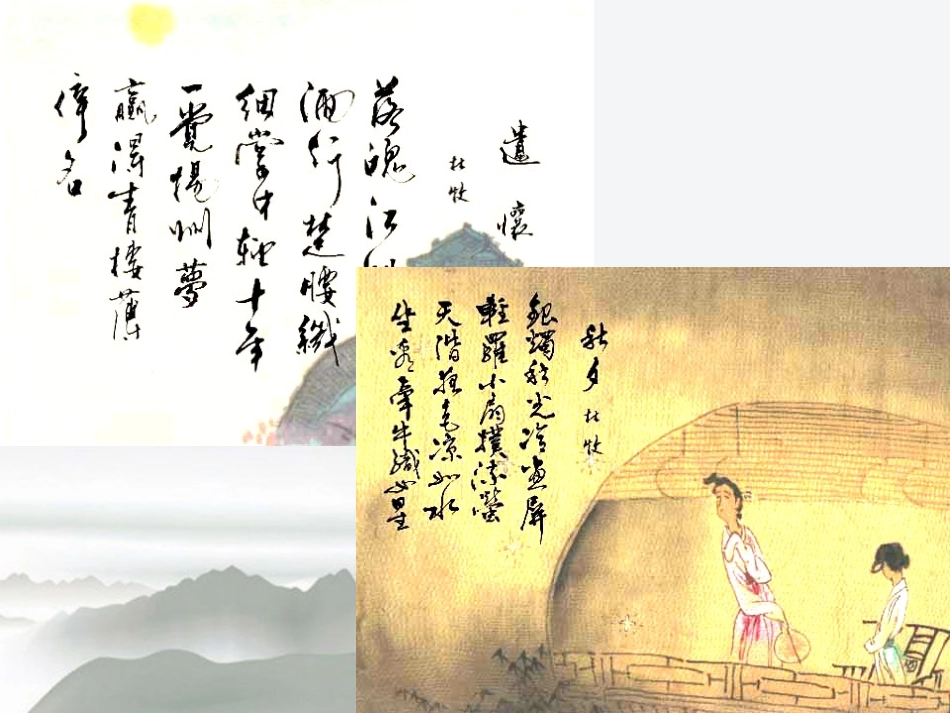 遣懷
杜牧
落魄江
酒行楚腰纖
細掌中輕十年
一覺揚州夢
贏得青樓薄
倖名
秋夕 杜牧
銀燭秋光冷畫屏
輕羅小扇撲流螢
天階夜色凉如水
坐看牽牛織女星